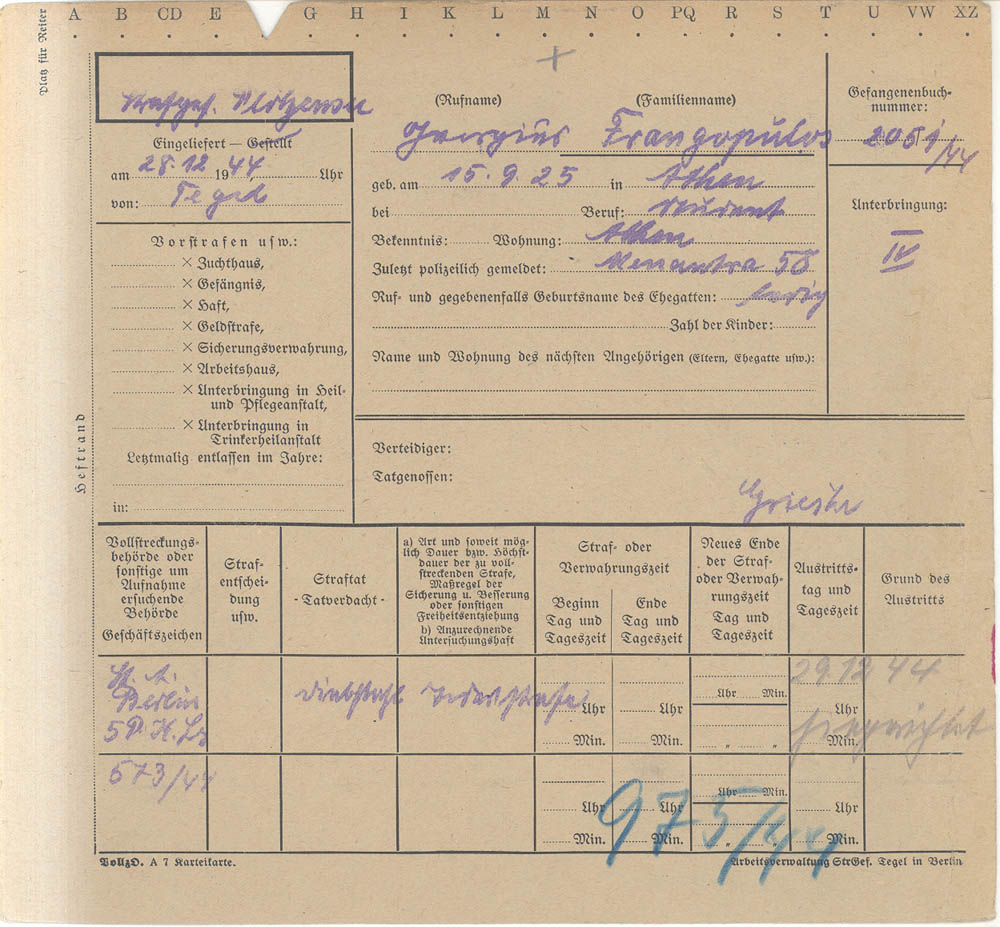 Platz für Reiter
A B CD E G H I K L M N O PQ R S T U VW XZ
Heftrand
Strafgef. Plötzensee
Eingeliefert — Gestellt
am 28.12 1944 Uhr
von: Tegel
Vorstrafen usw.:
× Zuchthaus,
× Gefängnis,
× Haft,
× Geldstrafe,
× Sicherungsverwahrung,
× Arbeitshaus,
× Unterbringung in Heil-
und Pflegeanstalt,
× Unterbringung in
Trinkerheilanstalt
Letztmalig entlassen im Jahre:
in:
(Rufname) (Familienname)
Georgius Frangopulos
geb. am 15.9.25 in Athen
bei Beruf: Student
Bekenntnis: Wohnung: Athen
Zuletzt polizeilich gemeldet: Menantra 58
Ruf- und gegebenenfalls Geburtsname des Ehegatten: ledig
Zahl der Kinder:
Name und Wohnung des nächsten Angehörigen (Eltern, Ehegatte usw.):
Gefangenenbuch-
nummer:
2051/44
Unterbringung:
IV
Verteidiger:
Tatgenossen:
Grieche
Vollstreckungs-
behörde oder
sonstige um
Aufnahme
ersuchende
Behörde
Geschäftszeichen
Straf-
entschei-
dung
usw.
Straftat
- Tatverdacht -
a) Art und soweit mög-
lich Dauer bzw. Höchst-
dauer der zu voll-
streckenden Strafe,
Maßregel der
Sicherung u. Besserung
oder sonstigen
Freiheitsentziehung
b) Anzurechnende
Untersuchungshaft
Straf- oder
Verwahrungszeit
Beginn
Tag und
Tageszeit
Ende
Tag und
Tageszeit
Neues Ende
der Straf-
oder Verwah-
rungszeit
Tag und
Tageszeit
Austritts-
tag und
Tageszeit
Grund des
Austritts
St. A.
Berlin
5 P. K. Ls
573/44
Diebstahl Todesstrafe
Uhr Uhr Uhr Min. Uhr
Min. Min. " " Min.
29.12.44
hingerichtet
Uhr Uhr Uhr Min. Uhr
Min. Min. " " Min.
975/44
VollzO. A 7 Karteikarte.
Arbeitsverwaltung StrGef. Tegel in Berlin